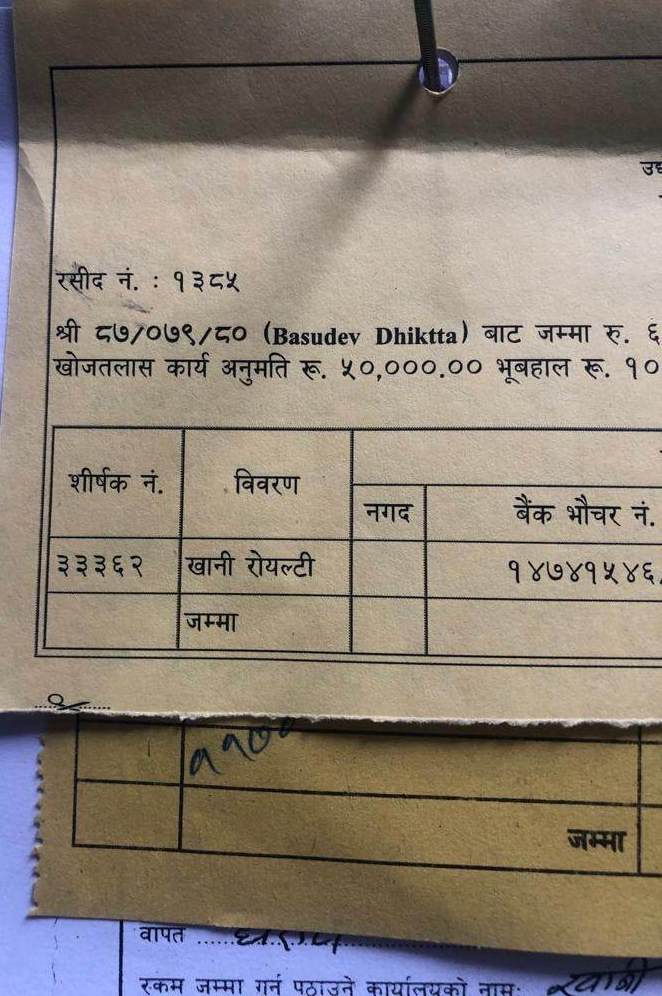 उद्
रसीद नं. : १३८५
श्री ८७/०७९/८० (Basudev Dhiktta) बाट जम्मा रु. ६
खोजतलास कार्य अनुमति रू. ५०,०००.०० भूबहाल रू. १०
शीर्षक नं. विवरण
नगद बैंक भौचर नं.
३३३६२ खानी रोयल्टी १४७४१५४६
जम्मा
जम्मा
वापत
रकम जम्मा गर्न पठाउने कार्यालयको नाम: खानी